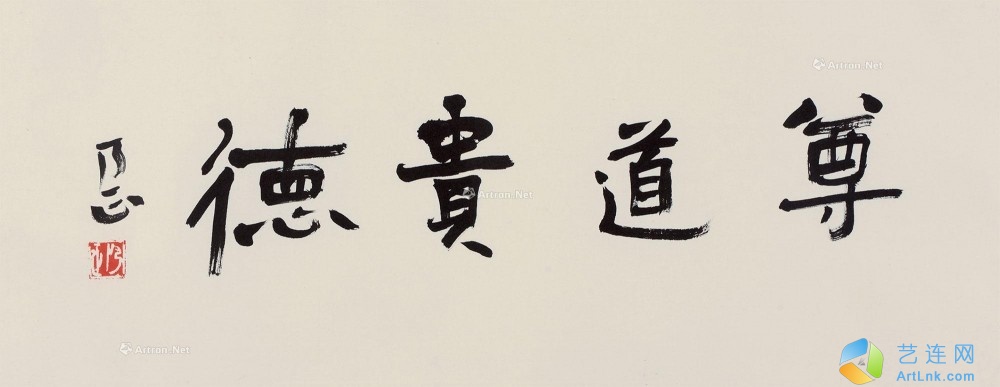 尊道貴德
乃正
Artron.Net
Artron.Net
Artron.Net
艺连网
ArtLnk.com